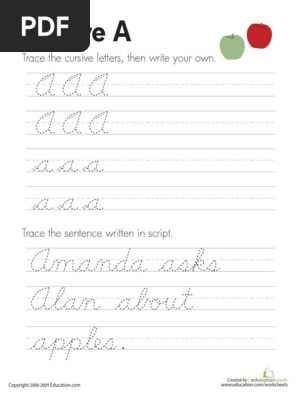 PDF
re A
Trace the cursive letters, then write your own.
a a a
a a a
a a a
a a a
Trace the sentence written in script.
Amanda asks
Alan about
apples.
Created by: education.com
Copyright 2008-2009 Education.com
www.education.com/worksheets